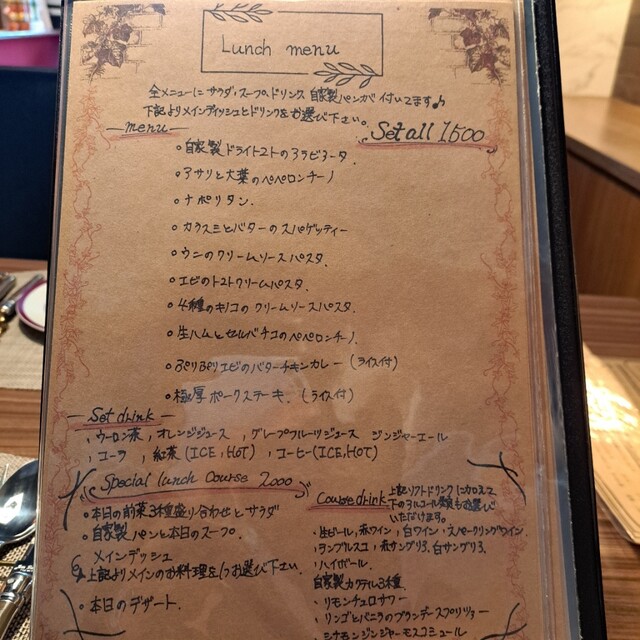 Lunch menu
全メニューに サラダ、スープ、ドリンク 自家製パンが 付いてます♪
下記よりメインディッシュとドリンクをお選び下さい。
menu
Set all 1500
。自家製 ドライトマトのアラビアータ.
。アサリと大葉のペペロンチーノ
。ナポリタン.
。カラスミとバターのスパゲッティー
。ウニのクリームソースパスタ.
。エビのトマトクリームパスタ.
。4種のキノコの クリームソースパスタ.
。生ハムとセルバチコのペペロンチーノ.
。ぷりぷりエビのバターチキンカレー (ライス付)
。極厚 ポークステーキ. (ライス付)
Set drink
、ウーロン茶 , オレンジジュース , グレープフルーツジュース ジンジャーエール
、コーラ , 紅茶 (ICE, HOT) , コーヒー(ICE,HOT)
Special lunch Course 2000
。本日の前菜3種盛り合わせとサラダ
。自家製 パンと本日のスープ.
。メインデッシュ
上記よりメインのお料理を1つお選び下さい
・本日のデザート.
Course drink
上記ソフトドリンクに加えて
下のアルコール類もお選び
いただけます。
・生ビール, 赤ワイン , 白ワイン , スパークリングワイン
・ランブルスコ , 赤サングリア, 白サングリア.
・ハイボール
自家製カクテル3種
・リモンチェロサワー
・リンゴとバニラのブランデースプリッツァー
・シナモンジンジャーモスコミュール